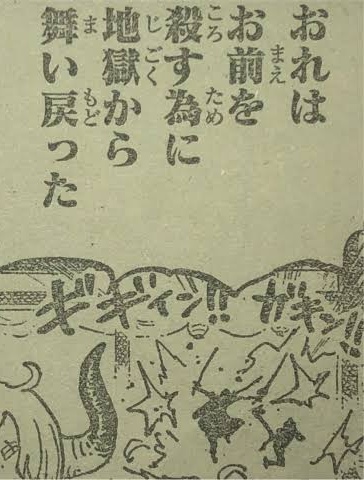 おれは
お前を
殺す為に
地獄から
舞い戻った
ガキン!!
ギギィン!!